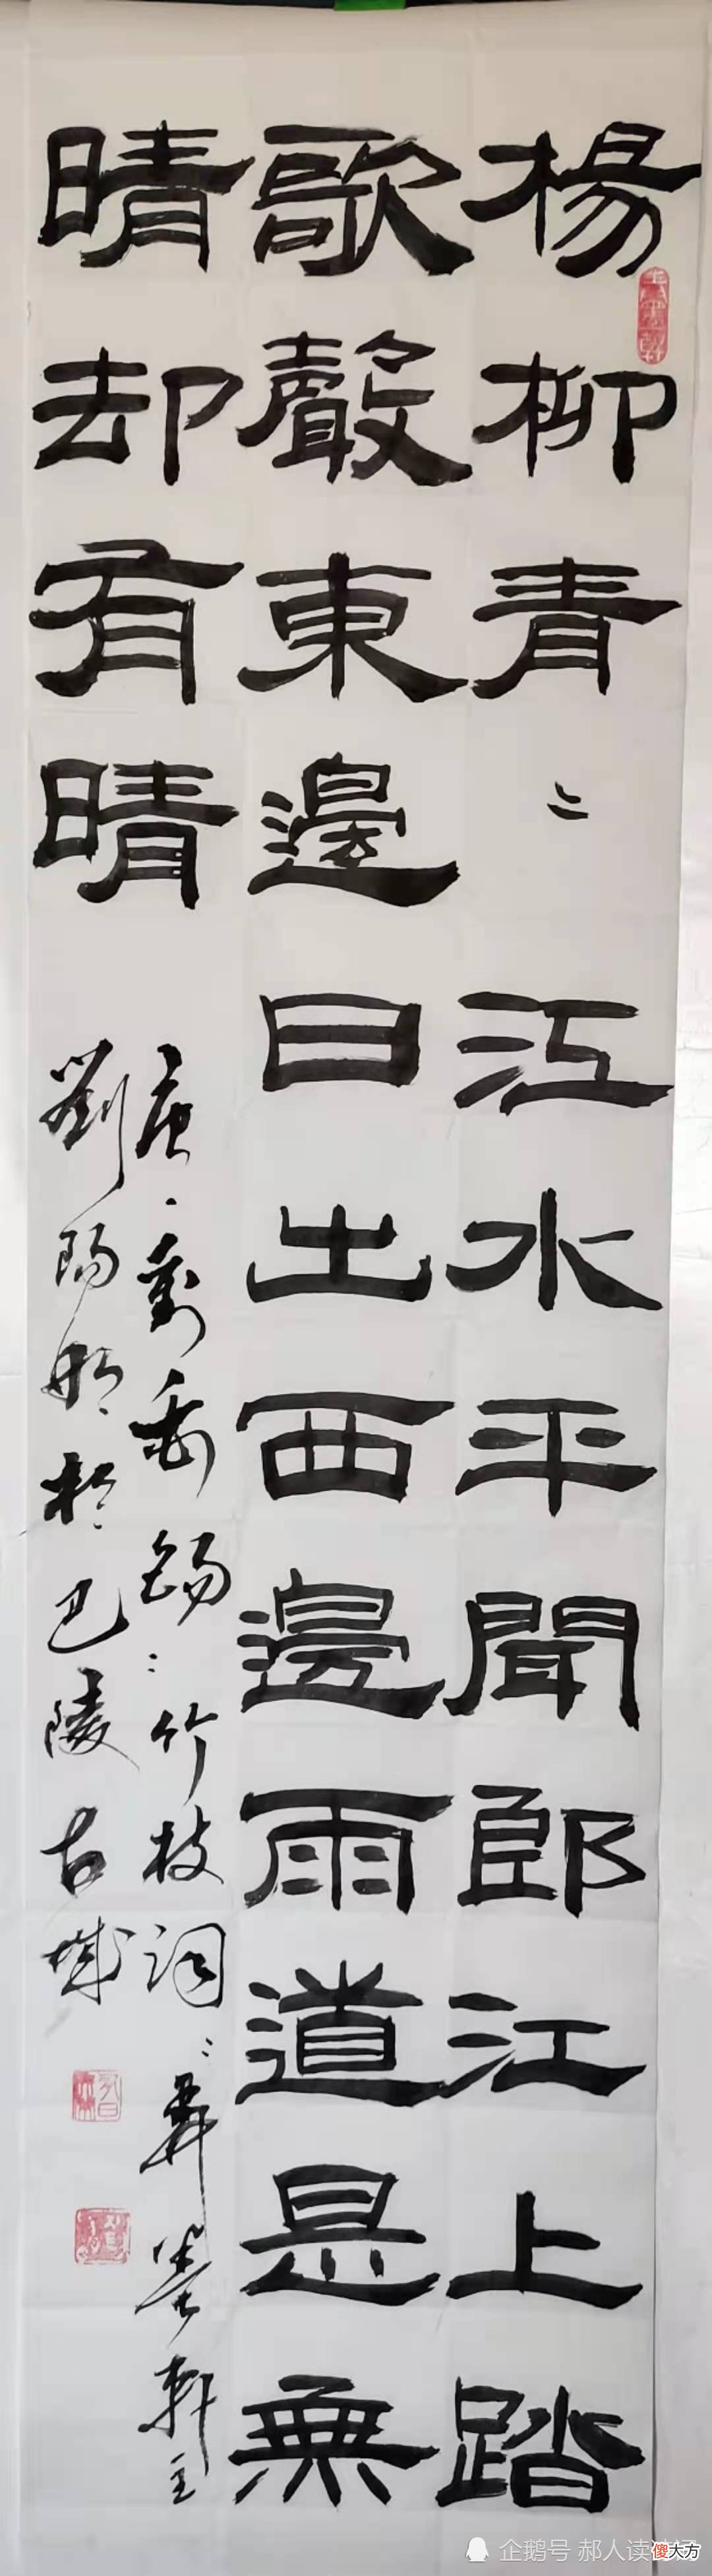 楊柳青〻江水平聞郎江上踏
歌聲東邊日出西邊雨道是無
晴却有晴
唐劉禹錫竹枝詞 墨軒主
劉陽 於巴陵古城
企鹅号 郝人读
傻大方